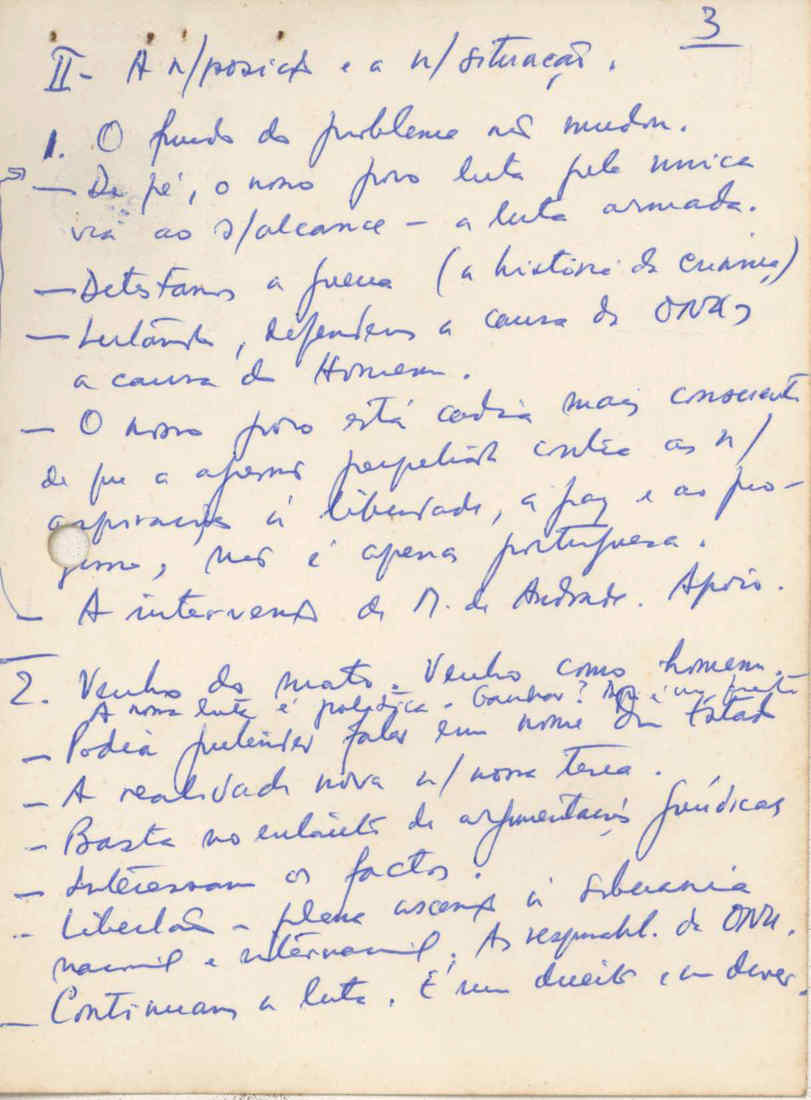 3
II - A n/posição e a n/situação.
1. O fundo do problema não mudou.
— De pé, o nosso povo luta pela única
via ao s/alcance — a luta armada.
— Detestamos a guerra (a história da criança)
— Lutando, defendemos a causa da ONU e
a causa do Homem.
— O nosso povo está cada dia mais consciente
de que a agressão perpetrada contra as n/
aspirações à liberdade, à paz e ao pro-
gresso, não é apenas portuguesa.
— A intervenção de M. de Andrade. Apoio.
2. Venho do mato. Venho como homem.
A nossa luta é política. Ganhar? Não é
— Podia pretender falar em nome dum Estado
— A realidade nova n/ nossa terra.
— Basta no entanto de argumentações jurídicas
— Interessam os factos.
— Libertação - plena ascensão à soberania
nacional e internacional. As responsabil. da ONU.
— Continuamos a luta. É um direito e um dever.